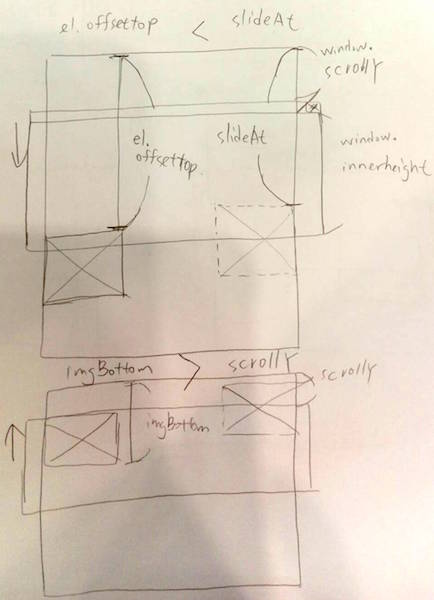 el. offsettop < slideAt
window.
scrollY
el.
offsettop
slideAt
window.
innerheight
imgBottom > scrollY
scrollY
imgBottom